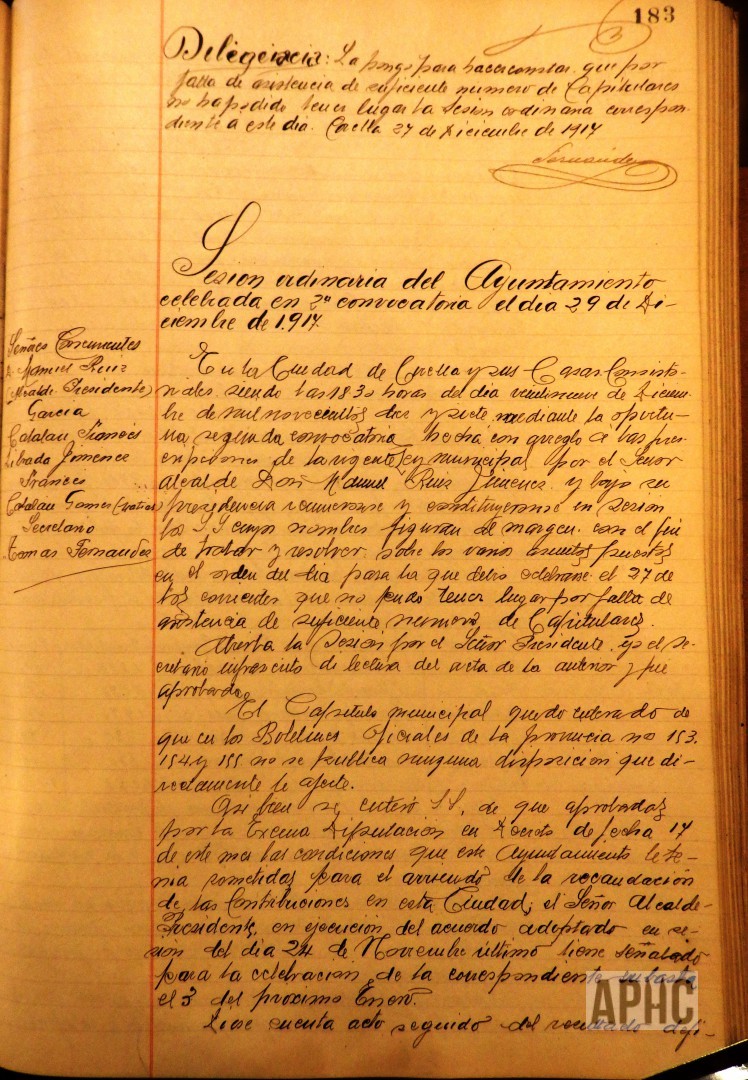 183
Diligencia: La pongo para hacer constar que por
falta de asistencia de suficiente numero de Capitulares
no ha podido tener lugar la sesion ordinaria correspon-
diente a este dia. Corella 27 de Diciembre de 1917
Fernández
Sesion ordinaria del Ayuntamiento
celebrada en 2ª convocatoria el dia 29 de Di-
ciembre de 1.917.
Señores Concurrentes
D. Manuel Ruiz
(Alcalde Presidente)
Garcia
Catalan Francés
Librada Jimenez
Frances
Catalan Gomez
Secretario
Tomas Fernandez
En la Ciudad de Corella y sus Casas Consisto-
riales siendo las 18'30 horas del dia veintinueve de Diciem-
bre de mil novecientos diez y siete mediante la oportu-
na segunda convocatoria hecha con arreglo á las pres-
cripciones de la vigente ley municipal por el Señor
Alcalde Don Manuel Ruiz Jimenez y bajo su
presidencia reunieronse y constituyeronse en sesion
los SS cuyos nombres figuran al margen con el fin
de tratar y resolver sobre los varios asuntos puestos
en el orden del dia para la que debio celebrarse el 27 de
los corrientes que no pudo tener lugar por falta de
asistencia de suficiente numero de Capitulares.
Abierta la Sesion por el Señor Presidente, yo el Se-
cretario infrascrito di lectura del acta de la anterior y fue
aprobada.
El Capitulo municipal quedo enterado de
que en los Boletines oficiales de la provincia no 153.
154 y 155 no se publica ninguna disposicion que di-
rectamente le afecte.
Asi bien se enteró S.S. de que aprobadas
por la Excma Diputación en Acuerdo de fecha 17
de este mes las condiciones que este Ayuntamiento le te-
nia sometidas para el arriendo de la recaudación
de las Contribuciones en esta Ciudad, el Señor Alcalde-
Presidente, en ejecución del acuerdo adoptado en se-
sión del dia 24 de Noviembre último tiene señalado
para la celebracion de la correspondiente subasta
el 3 del proximo Enero.
Diose cuenta acto seguido del resultado defi-
APHC